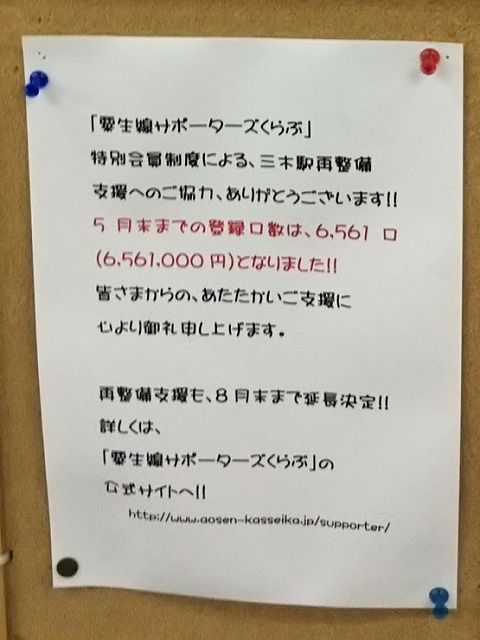 「粟生線サポーターズくらぶ」
特別会員制度による、三木駅再整備
支援へのご協力、ありがとうございます!!
5 月末までの登録口数は、6,561 口
(6,561,000 円)となりました!!
皆さまからの、あたたかいご支援に
心より御礼申し上げます。
再整備支援も、8 月末まで延長決定!!
詳しくは、
「粟生線サポーターズくらぶ」の
公式サイトへ!!
http://www.aosen-kasseika.jp/supporter/